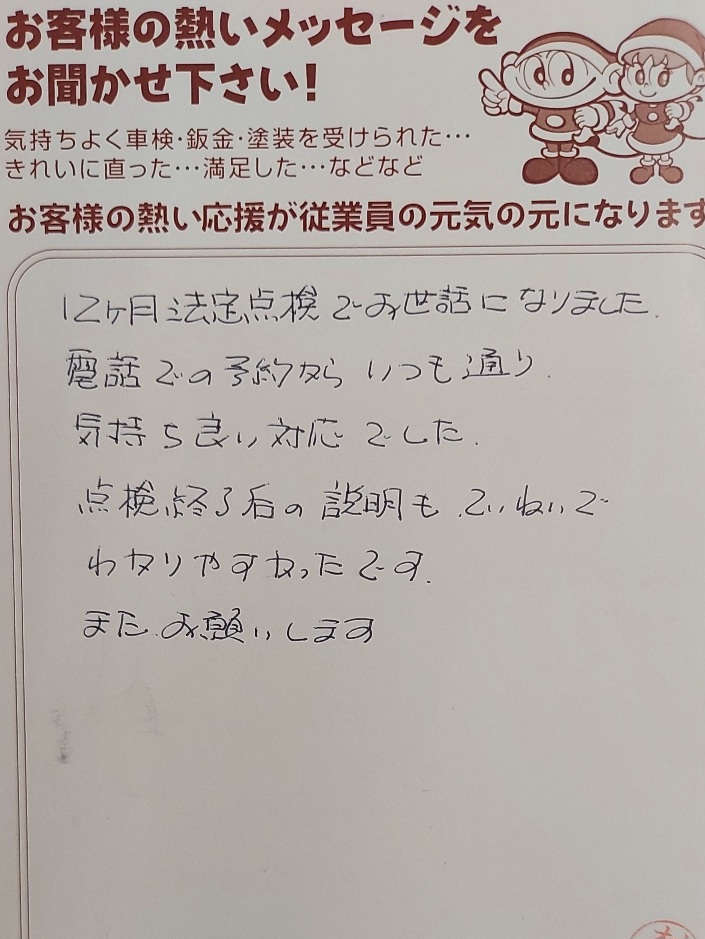 お客様の熱いメッセージを
お聞かせ下さい!
気持ちよく車検・鈑金・塗装を受けられた…
きれいに直った…満足した…などなど
お客様の熱い応援が従業員の元気の元になります
12ヶ月法定点検でお世話になりました.
電話での予約から いつも通り.
気持ち良い対応でした.
点検終了后の説明も.ていねいで
わかりやすかったです.
また.お願いします